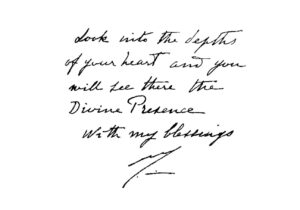 Look into the depths
of your heart and you
will see there the
Divine Presence
With my blessings